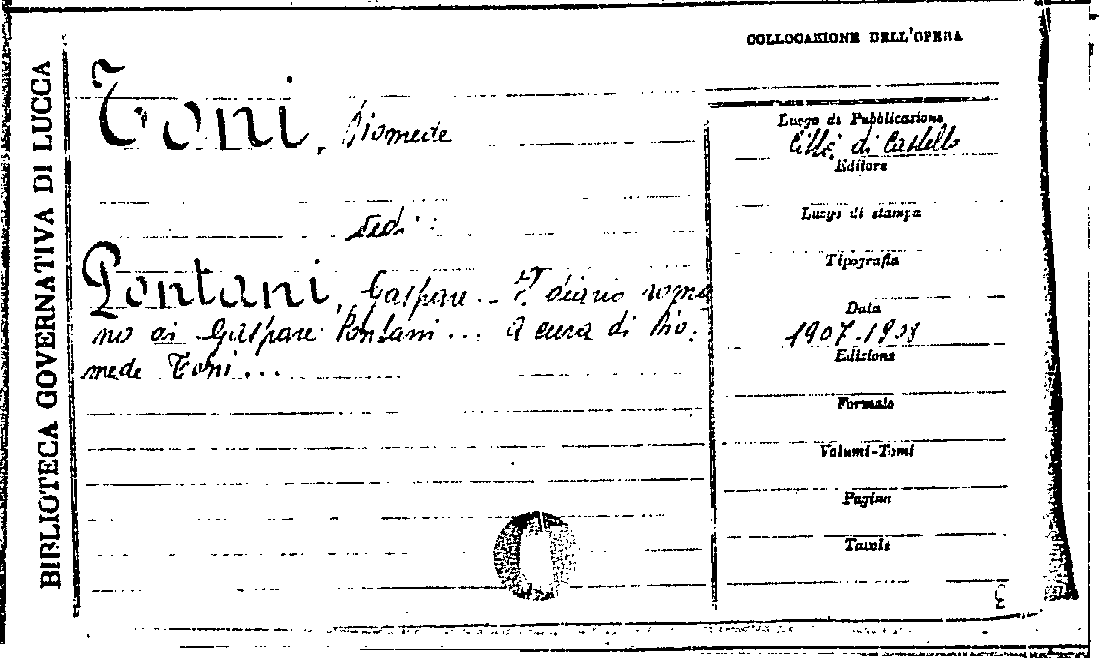 BIBLIOTECA GOVERNATIVA DI LUCCA
COLLOCAZIONE DELL'OPERA
Toni, Diomede
vedi:
Pontani, Gaspare... Il diario roma
no di Gaspare Pontani... a cura di Dio-
mede Toni...
Luogo di Pubblicazione
Città di Castello
Editore
Luogo di stampa
Tipografia
Data
1907-1908
Edizione
Formato
Volumi-Tomi
Pagine
Tavole